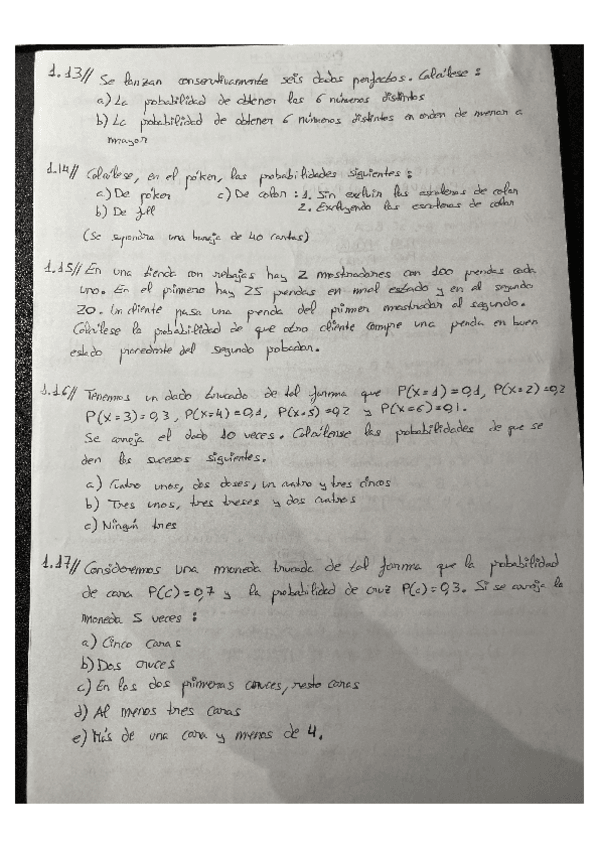 1.13// Se lanzan consecutivamente seis dados perfectos. Calcúlese :
a) La probabilidad de obtener los 6 números distintos
b) La probabilidad de obtener 6 números distintos en orden de menor a
mayor
1.14// Calcúlese, en el póker, las probabilidades siguientes :
a) De póker c) De color : 1. Sin excluir las escaleras de color
b) De full 2. Excluyendo las escaleras de color
(Se supondrá una baraja de 40 cartas)
1.15// En una tienda con rebajas hay 2 mostradores con 100 prendas cada
uno. En el primero hay 25 prendas en mal estado y en el segundo
20. Un cliente pasa una prenda del primer mostrador al segundo.
Calcúlese la probabilidad de que otro cliente compre una prenda en buen
estado procedente del segundo
1.16// Tenemos un dado trucado de tal forma que P(X=1)=0,1, P(X=2)=0,2
P(X=3)=0,3, P(X=4)=0,1, P(X=5)=0,2 y P(X=6)=0,1.
Se arroja el dado 10 veces. Calcúlense las probabilidades de que se
den los sucesos siguientes.
a) Cuatro unos, dos doses, un cuatro y tres cincos
b) Tres unos, tres treses y dos cuatros
c) Ningún tres
1.17// Consideremos una moneda trucada de tal forma que la probabilidad
de cara P(C)=0,7 y la probabilidad de cruz P(c)=0,3. Si se arroja la
moneda 5 veces :
a) Cinco caras
b) Dos cruces
c) En las dos primeras cruces, resto caras
d) Al menos tres caras
e) Más de una cara y menos de 4.